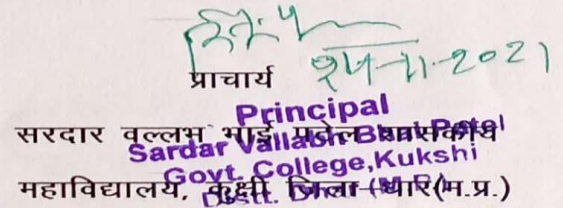 24-11-2021
प्राचार्य
Principal
सरदार वल्लभ भाई पटेल शासकीय
Sardar Vallabh Bhai Patel
Govt. College,Kukshi
महाविद्यालय, कुक्षी जिला-धार(म.प्र.)
Distt. Dhar (M.P.)